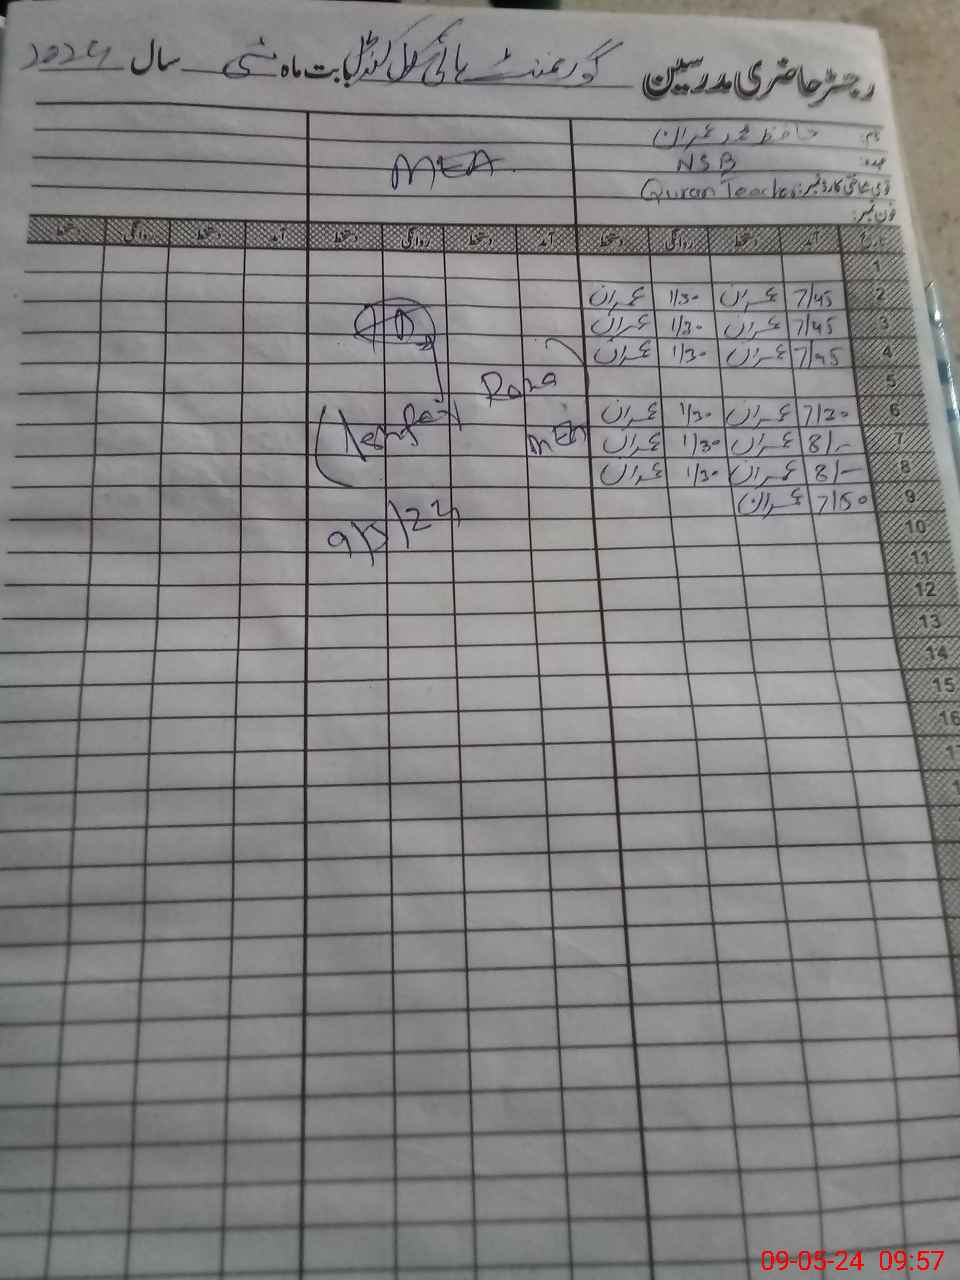 رجسٹر حاضری مدرسین گورنمنٹ ہائی سکول بابت ماہ مئی سال 2024
نام: حافظ محمد عمران
عہدہ: NSB
قومی شناختی کارڈ نمبر: Quran Teacher
فون نمبر:
MEA
تاریخ آمد دستخط روانگی دستخط آمد دستخط روانگی دستخط آمد دستخط روانگی دستخط
1
2 7/45 عمران 1/30 عمران
3 7/45 عمران 1/30 عمران
4 7/45 عمران 1/30 عمران
5
6 7/20 عمران 1/30 عمران
7 8/- عمران 1/30 عمران
8 8/- عمران 1/30 عمران
9 7/50 عمران
10
11
12
13
14
15
16
Rana
MEA
9/5/24
09-05-24 09:57